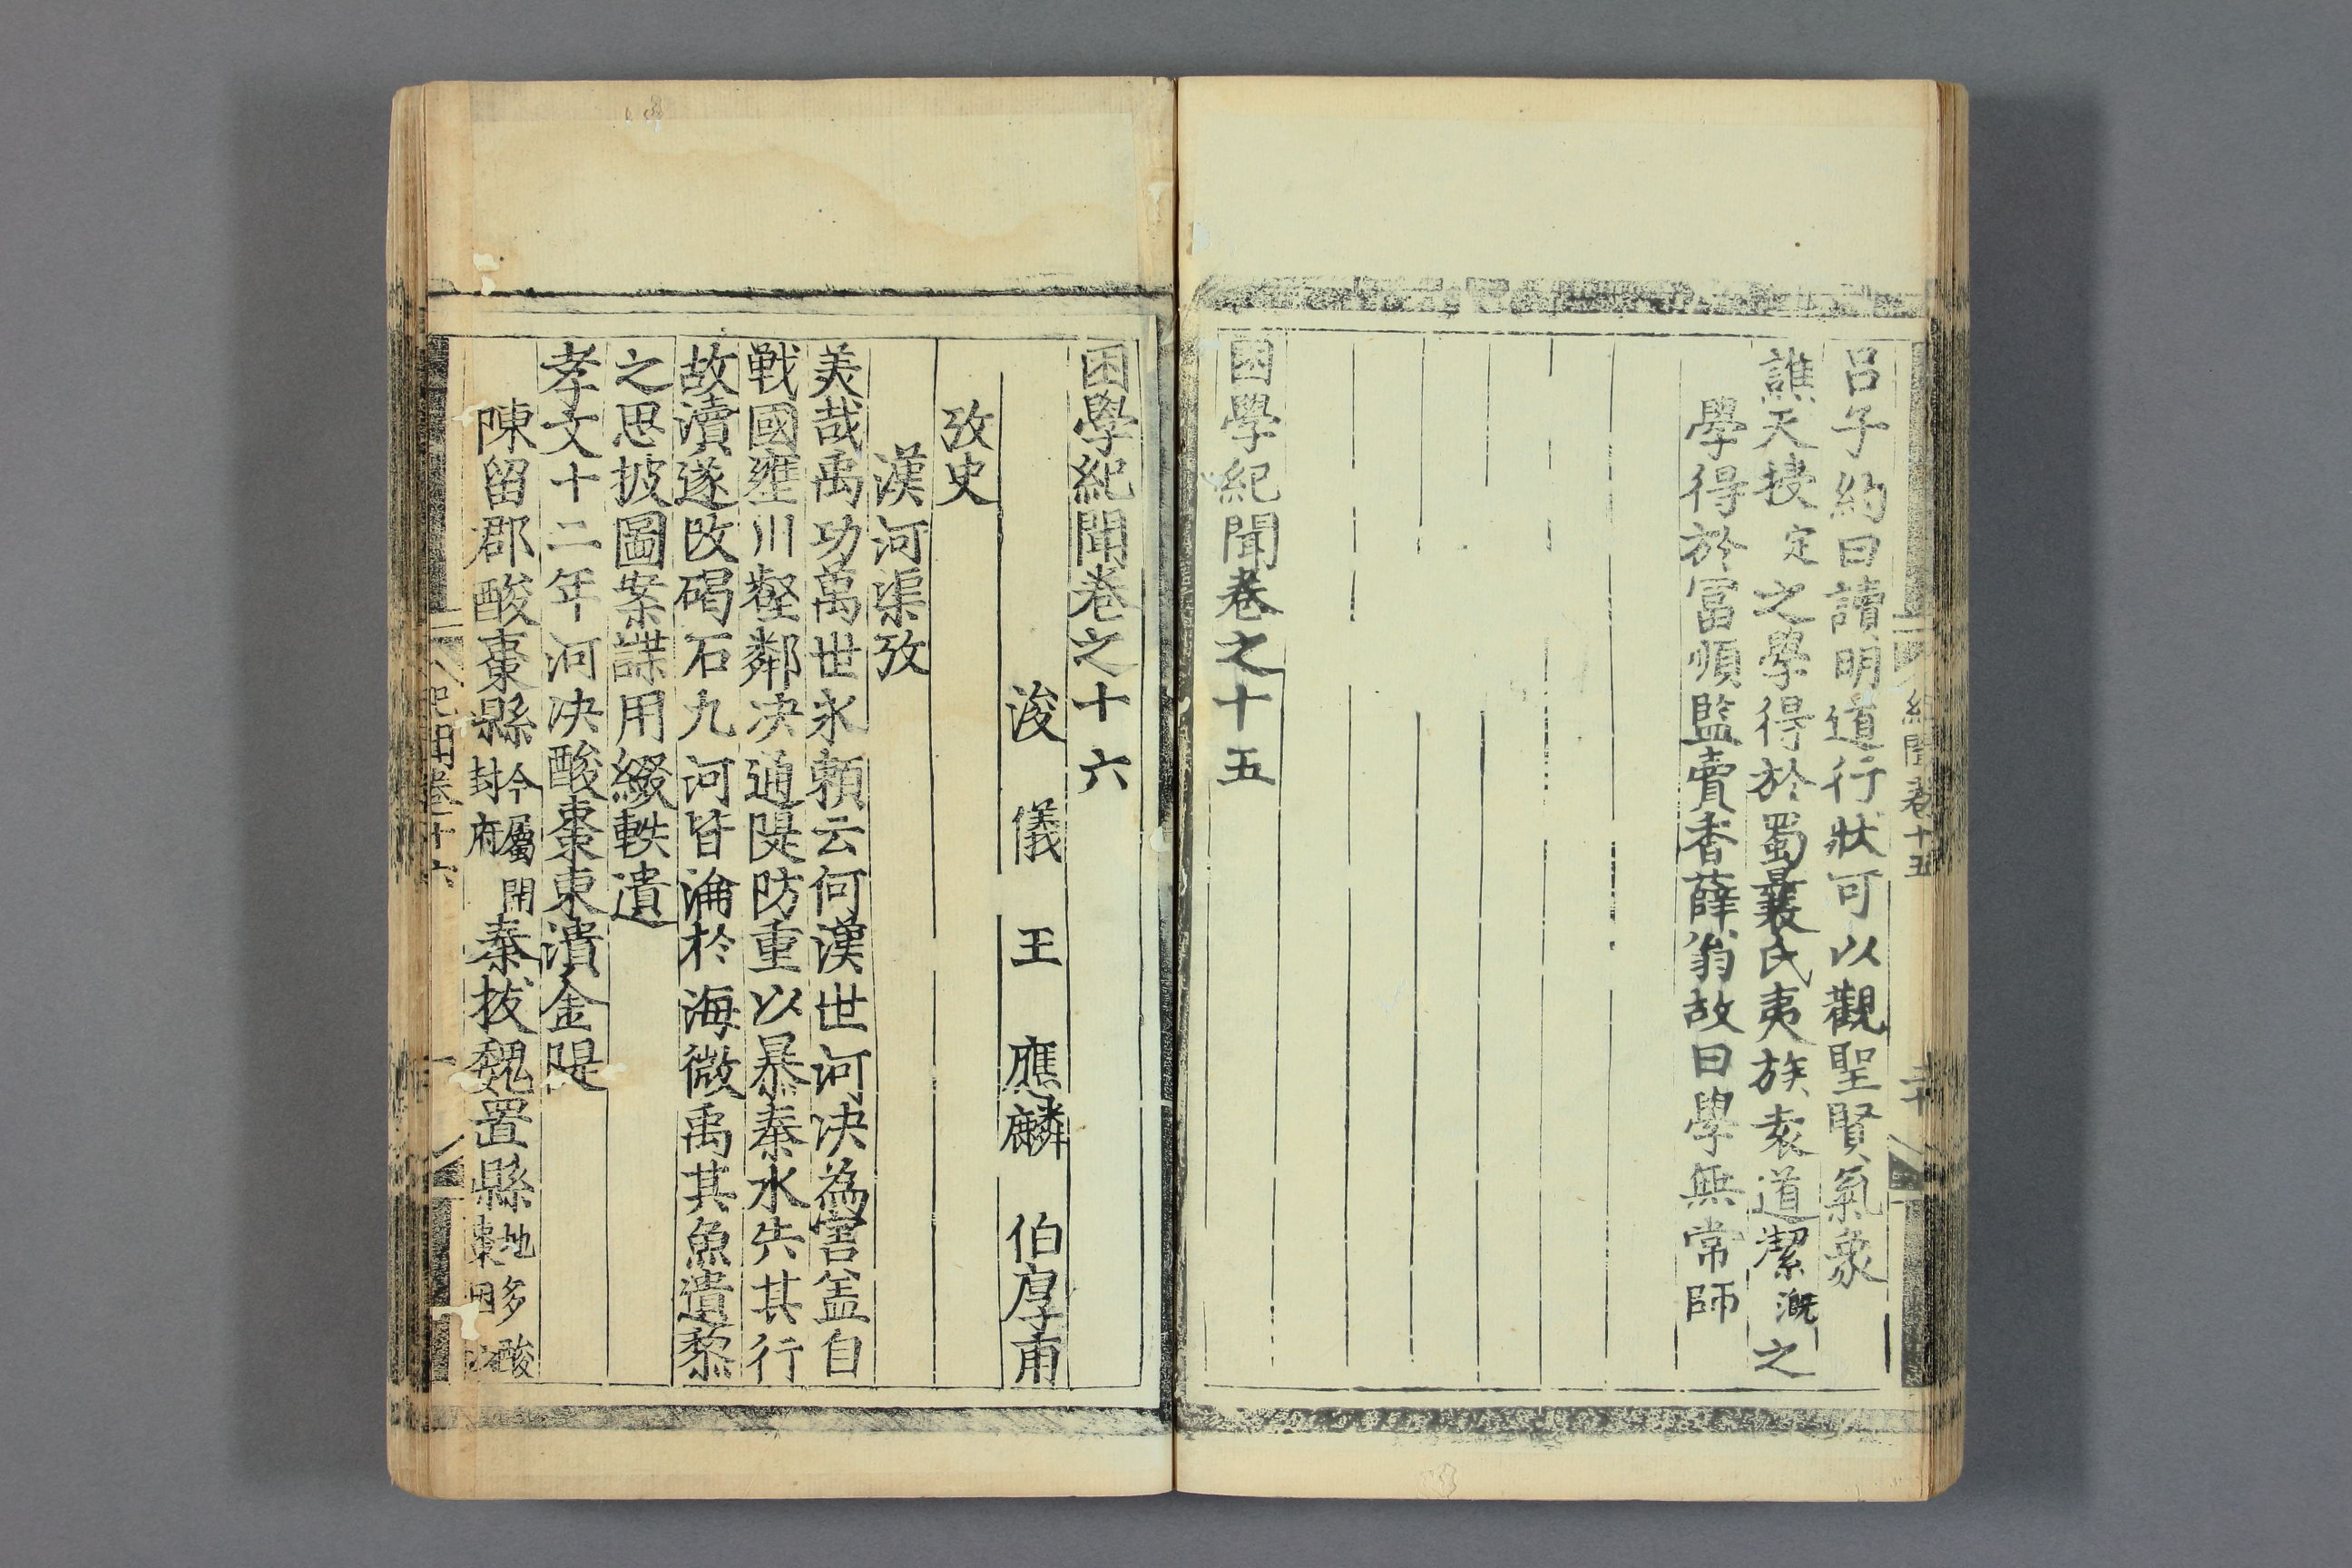 呂子約曰讀明道行狀可以觀聖賢氣象
譙天授定之學得於蜀曩氏夷族袁道潔溉之
學得於富順監賣香薛翁故曰學無常師
困學紀聞卷之十五
紀聞卷十五
困學紀聞卷之十六
浚儀王應麟伯厚甫
攷史
漢河渠攷
美哉禹功萬世永賴云何漢世河决為害盖自
戰國壅川壑鄰决通隄防重以暴秦水失其行
故瀆遂改碣石九河皆淪於海微禹其魚遺黎
之思披圖案諜用綴軼遺
孝文十二年河决酸棗東潰金隄
陳留郡酸棗縣今屬開封府秦拔魏置縣地多酸棗因以
紀聞卷十六